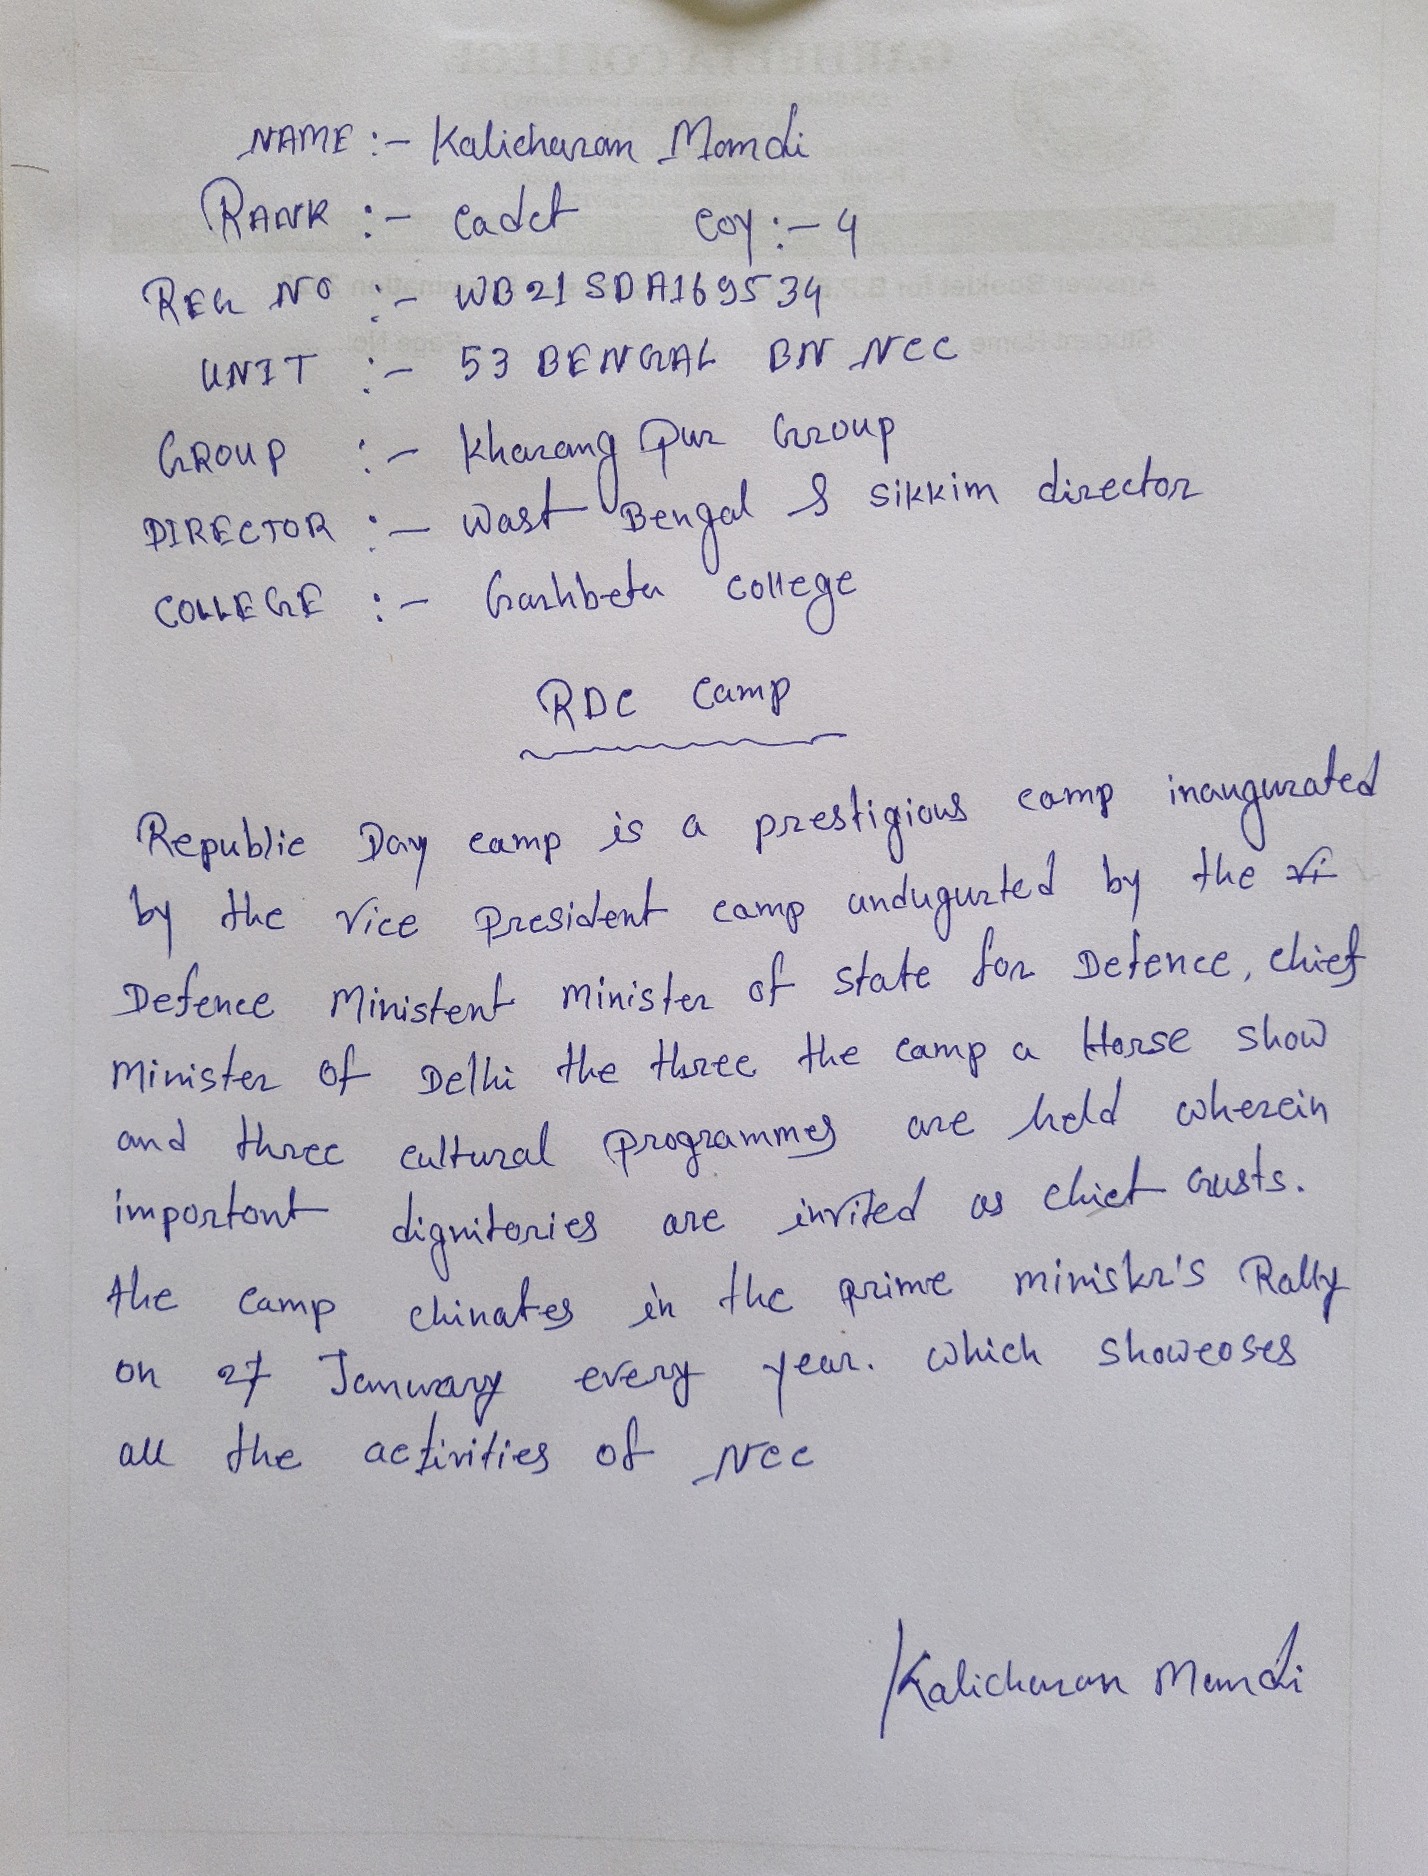 NAME :- Kalicharan Mamdi
RANK :- cadet coy :- 4
REG NO :- WB21SDA169534
UNIT :- 53 BENGAL BN NCC
GROUP :- Kharangpur Group
DIRECTOR :- Wast Bengal & sikkim director
COLLEGE :- Garhbeta college
RDC Camp
Republic Day camp is a prestigious camp inaugurated
by the vice president camp undugurted by the
Defence Ministent minister of state for Defence, chief
Minister of Delhi the three the camp a Horse show
and three cultural programmes are held wherein
important dignitories are invited as chief Gusts.
the camp clinates in the prime minister's Rally
on 27 January every year. which showcoses
all the activities of NCC
Kalicharan Mandi